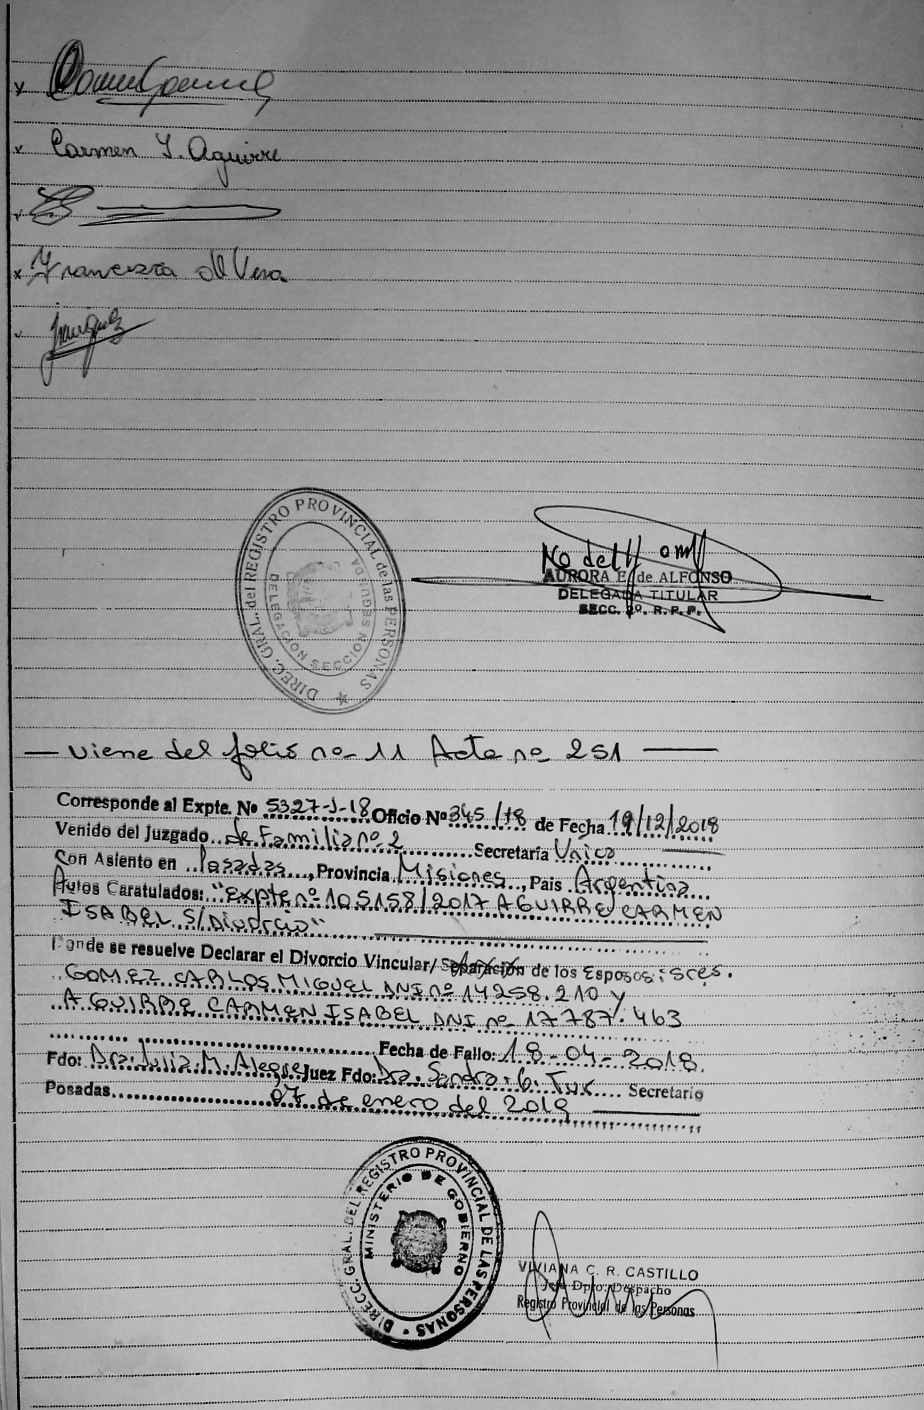 Carmen I. Aguirre
Francisca de Vera
DIREC. GRAL. del REGISTRO PROVINCIAL de las PERSONAS
DELEGACION SECCION SEGUNDA
AURORA E. de ALFONSO
DELEGADA TITULAR
SECC. 2º. R. P. P.
— Viene del folio nº 11 Acta nº 251 —
Corresponde al Expte. Nº 5327-J-18 Oficio Nº 345/18 de Fecha 19/12/2018
Venido del Juzgado de Familia nº 2 Secretaría Unica
Con Asiento en Posadas, Provincia Misiones, Pais Argentina
Autos Caratulados: "Expte nº 105158/2017 AGUIRRE CARMEN
ISABEL S/Divorcio"
Donde se resuelve Declarar el Divorcio Vincular/ Separación de los Esposos: sres.
GOMEZ CARLOS MIGUEL DNI nº 14258.210 y
AGUIRRE CARMEN ISABEL DNI nº 17787.463
Fecha de Fallo: 18-04-2018.
Fdo: Dra. Julia. M. Alegre Juez Fdo: Dra. Sandra. G. Tux Secretario
Posadas 07 de enero del 2019
DIRECC. GRAL. DEL REGISTRO PROVINCIAL DE LAS PERSONAS
MINISTERIO DE GOBIERNO
VIVIANA C. R. CASTILLO
Jefe Dpto. Despacho
Registro Provincial de las Personas